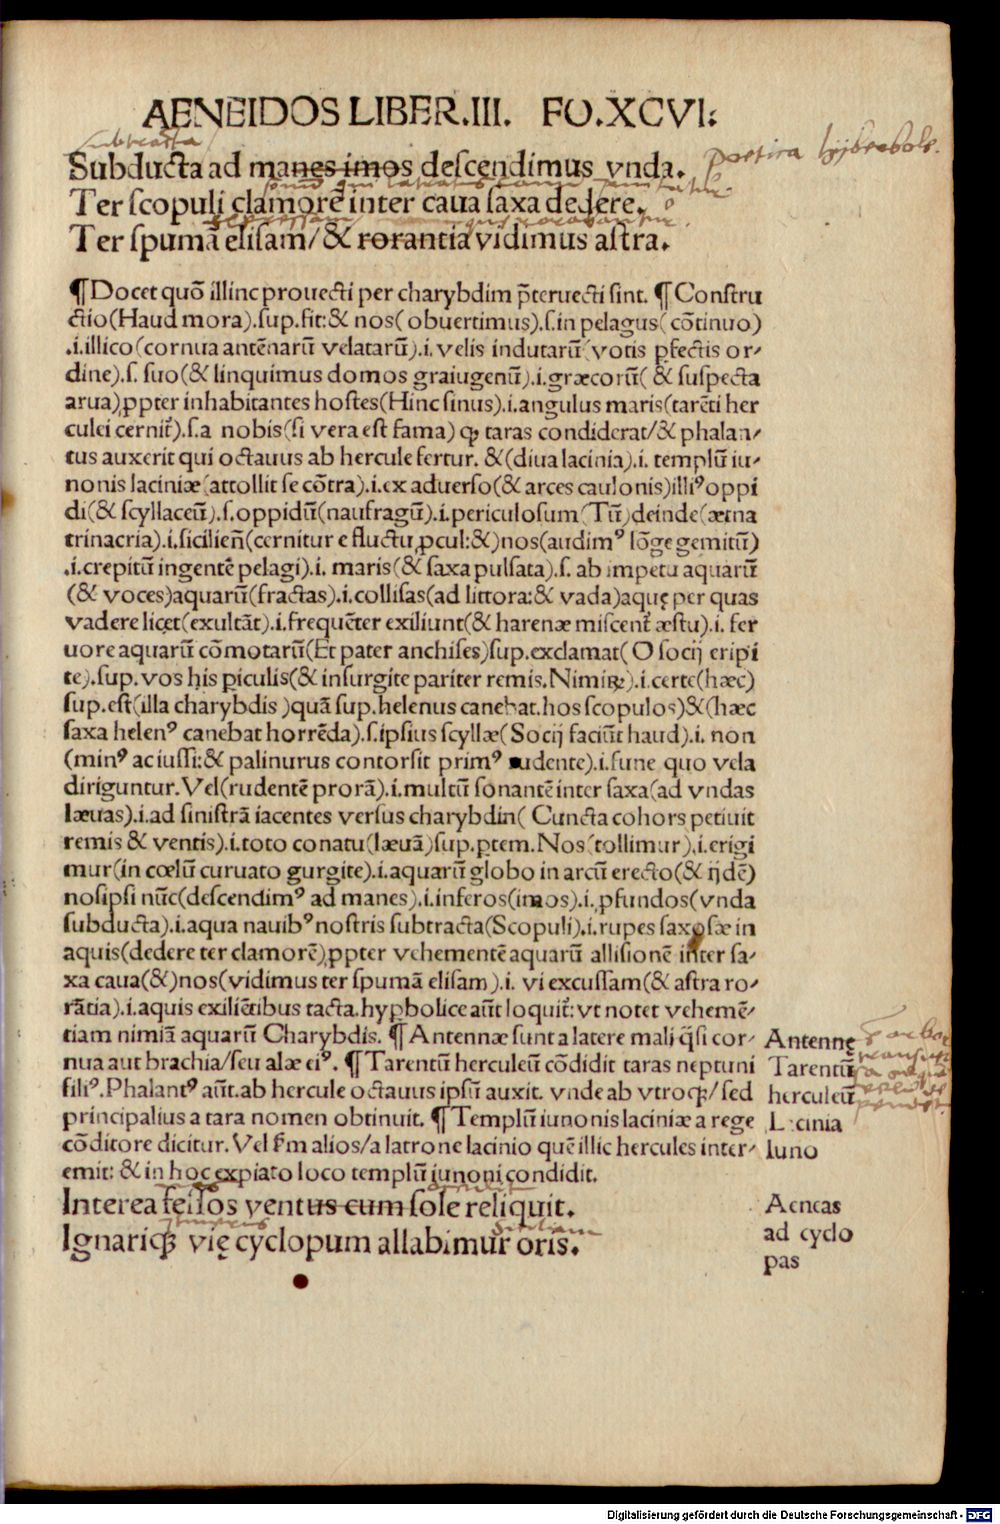 AENEIDOS LIBER.III. FO.XCVI:
subtracta
Subducta ad manes imos deſcendimus vnda.
poetica hyberbole.
Ter ſcopuli clamorē inter caua ſaxa dedere.
Ter ſpumā eliſam/ & rorantia vidimus aſtra.
¶ Docet quō illinc prouecti per charybdim p̄teruecti ſint. ¶ Conſtru
ctio(Haud mora).ſup.fit:& nos( obuertimus).ſ.in pelagus( cōtinuo)
.i.illico(cornua antēnarū velatarū).i. velis indutarū(votis ꝑfectis or⸗
dine).ſ. ſuo(& linquimus domos graiugenū).i.græcorū( & ſuſpecta
arua)ꝓpter inhabitantes hoſtes(Hinc ſinus).i.angulus maris(tarēti her
culei cernit̄).ſ.a nobis(ſi vera eſt fama) ꝙ taras condiderat/& phalan⸗
tus auxerit qui octauus ab hercule fertur. &(diua lacinia).i. templū iu⸗
nonis laciniæ(attollit ſe cōtra).i.ex aduerſo(& arces caulonis)illiꝰ oppi
di(& ſcyllaceū).ſ.oppidū(naufragū).i.periculoſum(Tū)deinde(ætna
trinacria).i.ſicilien̄(cernitur e fluctu ꝓcul:&)nos(audimꝰ lōge gemitū)
.i.crepitū ingentē pelagi).i. maris(& ſaxa pulſata).ſ. ab impetu aquarū
(& voces)aquarū(fractas).i.colliſas(ad littora:& vada)aquę per quas
vadere licet(exultāt).i.frequēter exiliunt(& harenæ miſcent̄ æſtu).i. fer
uore aquarū cōmotarū(Et pater anchiſes)ſup.exclamat( O ſocij eripi
te).ſup. vos his ꝑiculis(& inſurgite pariter remis. Nimiꝝ).i.certe(hæc)
ſup.eſt(illa charybdis )quā ſup.helenus canebat.hos ſcopulos)&(hæc
ſaxa helenꝰ canebat horrēda).ſ.ipſius ſcyllæ( Socij faciūt haud).i. non
(minꝰ ac iuſſi:& palinurus contorſit primꝰ rudente).i.fune quo vela
diriguntur. Vel(rudentē prorā).i.multū ſonantē inter ſaxa(ad vndas
læuas).i.ad ſiniſtrā iacentes verſus charybdin( Cuncta cohors petiuit
remis & ventis).i.toto conatu(læuā)ſup.ꝑtem. Nos(tollimur).i.erigi
mur(in cœlū curuato gurgite).i.aquarū globo in arcū erecto(& ijdē)
noſipſi nūc(deſcendimꝰ ad manes).i.inferos(imos).i.ꝓfundos(vnda
ſubducta).i.aqua nauibꝰ noſtris ſubtracta(Scopuli).i.rupes ſaxoſæ in
aquis(dedere ter clamorē)ꝓpter vehementē aquarū alliſionē inter ſa⸗
xa caua(&)nos(vidimus ter ſpumā eliſam).i. vi excuſſam(& aſtra ro⸗
rātia).i.aquis exiliētibus tacta.hyꝑbolice aūt loquit̄: vt notet vehemē⸗
tiam nimiā aquarū Charybdis. ¶ Antennæ ſunt a latere mali q̄ſi cor⸗
nua aut brachia/ſeu alæ eiꝰ. ¶ Tarentū herculeū cōdidit taras neptuni
filiꝰ. Phalantꝰ aūt.ab hercule octauus ipſū auxit. vnde ab vtroqꝫ/ ſed
principalius a tara nomen obtinuit. ¶ Templū iunonis laciniæ a rege
cōditore dicitur. Vel ẜm alios/a latrone lacinio quē illic hercules inter⸗
emit: & in hoc expiato loco templū iunoni condidit.
Antennę
Tarentū
herculeū
Lacinia
Iuno
Interea feſſos ventus cum ſole reliquit.
Ignariqꝫ vię cyclopum allabimur oris.
Aeneas
ad cyclo
pas
Digitalisierung gefördert durch die Deutsche Forschungsgemeinschaft - DFG